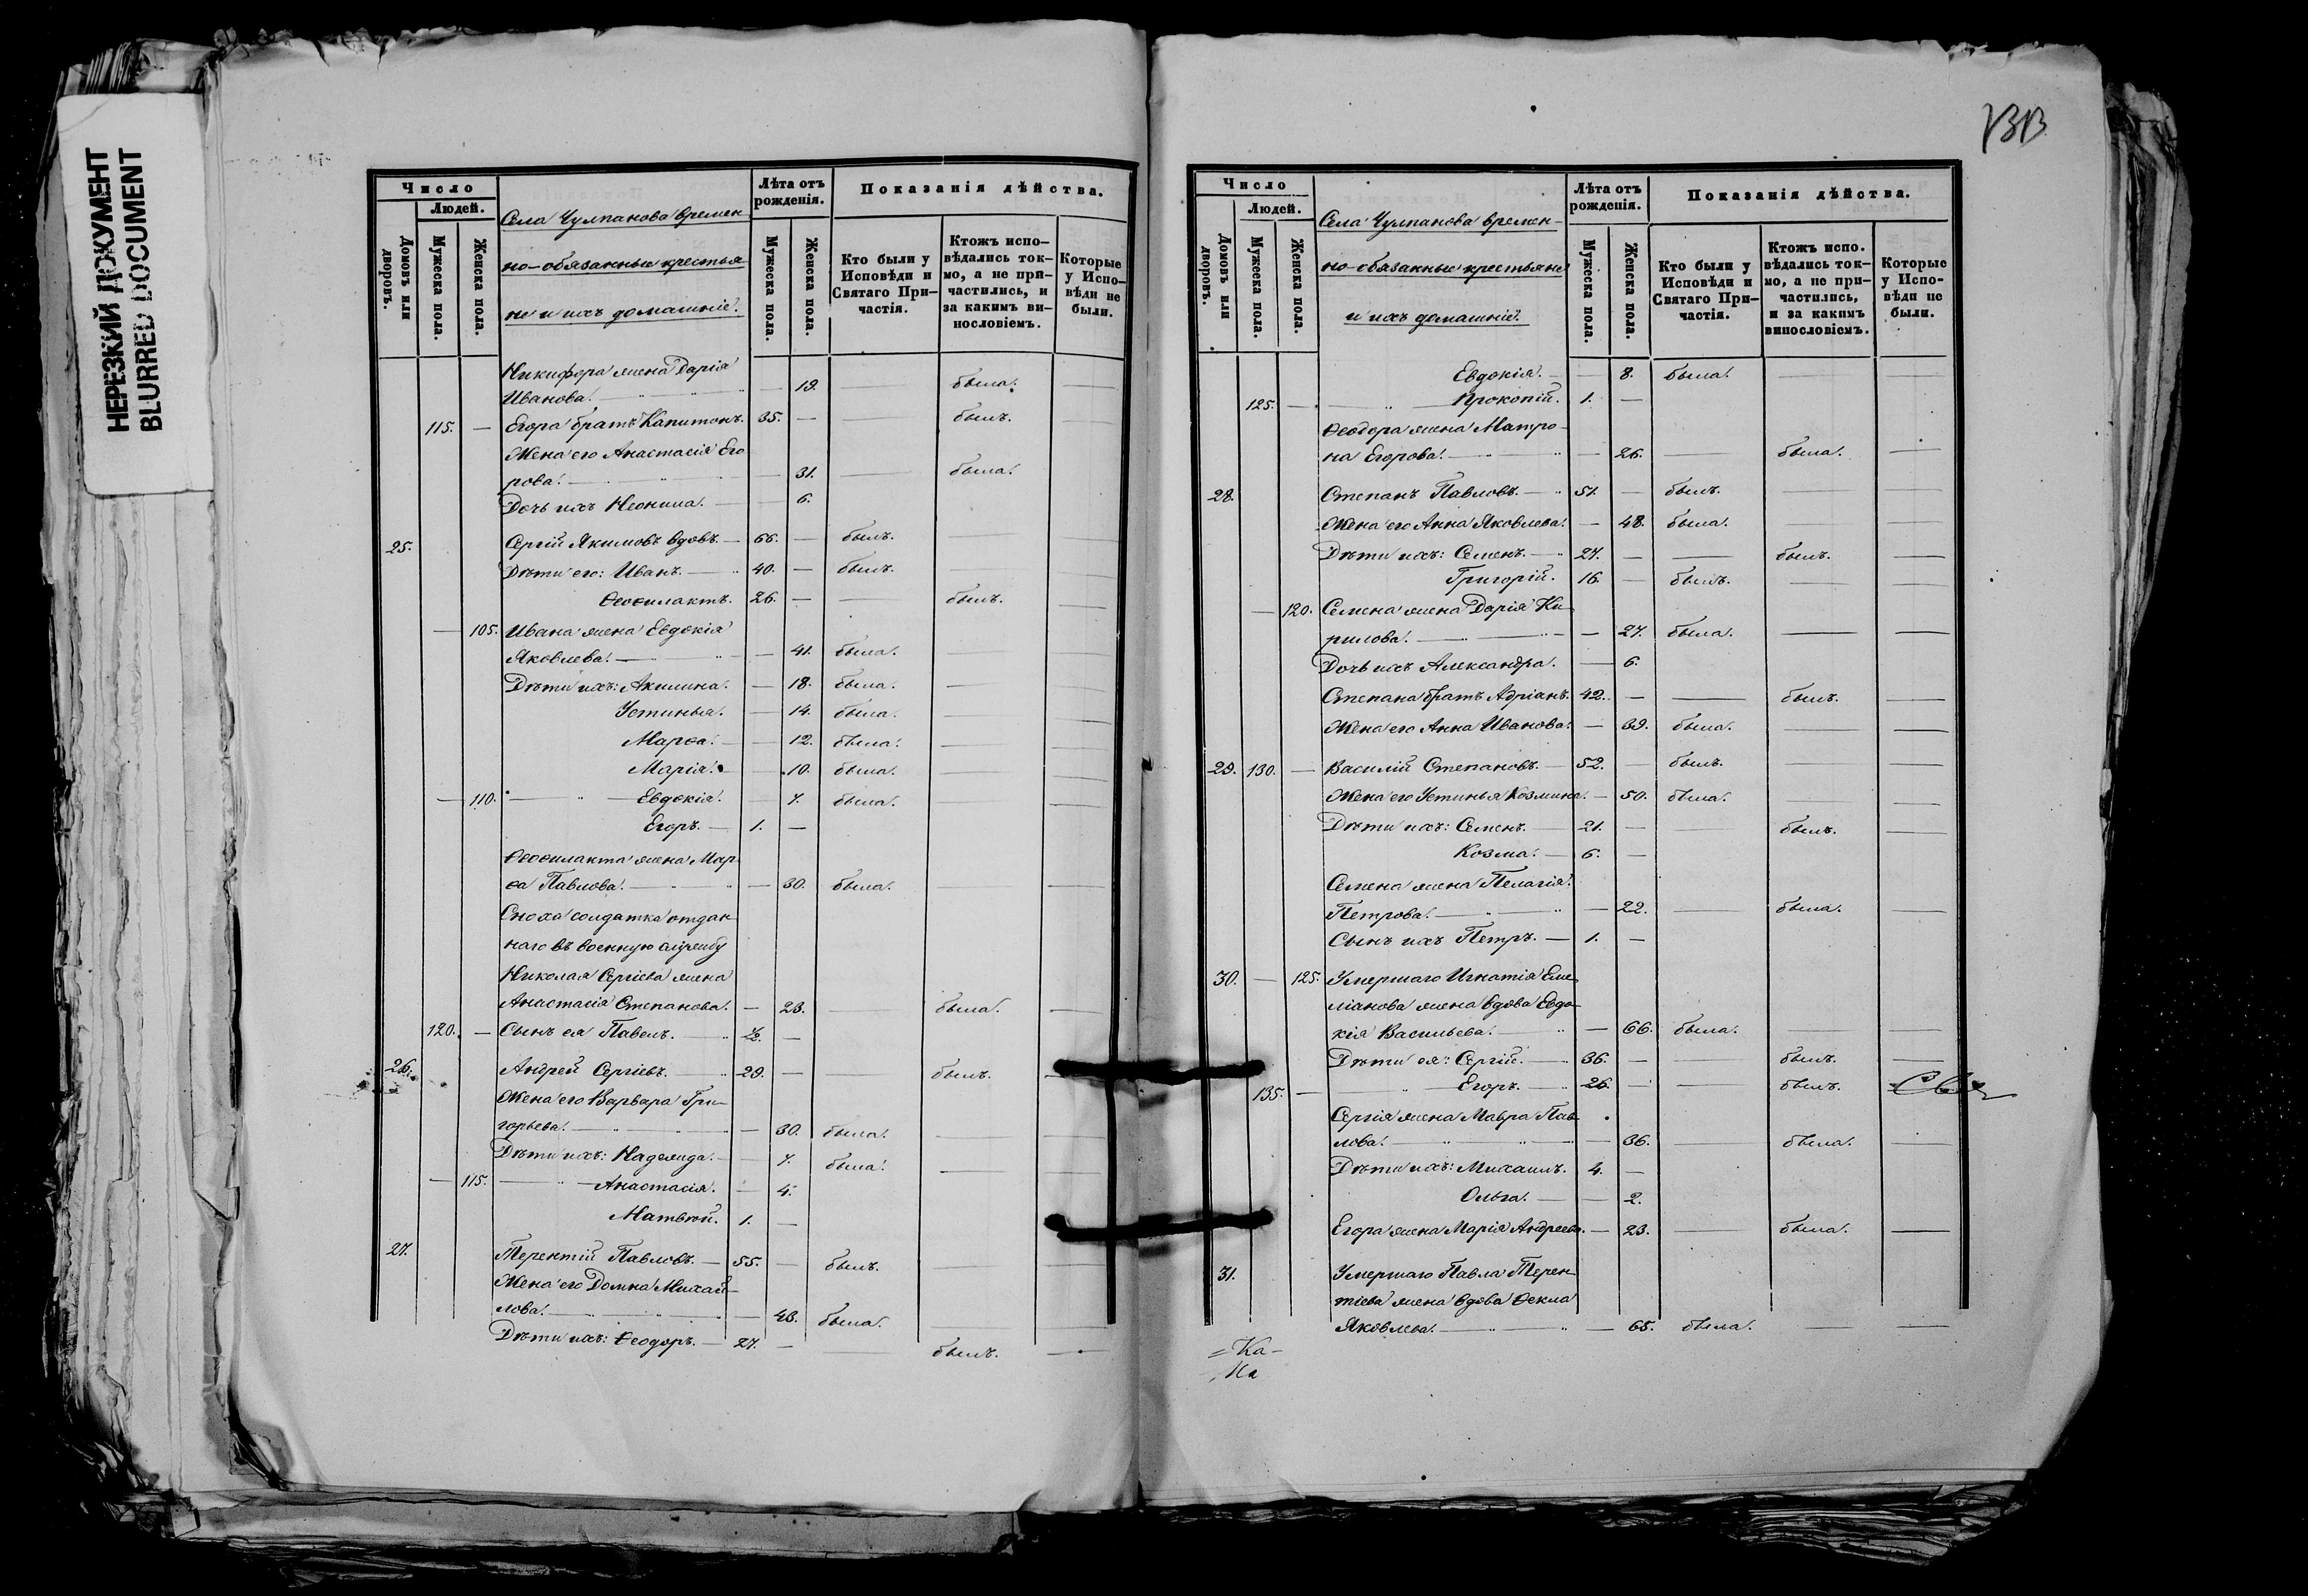 НЕРЕЗКИЙ ДОКУМЕНТ
BLURRED DOCUMENT
Число
Людей.
Домовъ или дворовъ.
Мужеска пола.
Женска пола.
Села Чулпанова времен
но-обязанные крестья
не и ихъ домашніе.
Лѣта отъ рожденія.
Мужеска пола.
Женска пола.
Показанія дѣйства.
Кто были у Исповѣди и Святаго При-частія.
Ктожъ испо-вѣдались ток-мо, а не при-частились, и за какимъ ви-нословіемъ.
Которые у Испо-вѣди не были.
Никифора жена Дарія
Иванова. — 19. — была. —
115. — Егора братъ Капитонъ. 35. — — былъ.
Жена его Анастасія Его
рова. — 31. — была.
Дочь ихъ Неонила. — 6.
25. Сергій Якимовъ вдовъ. — 66. — былъ.
Дѣти его: Иванъ. — 40. — былъ.
Ѳеоѳилактъ. 26. — — былъ. —
— 105. Ивана жена Евдокія
Яковлева. — — 41. была. — —
Дѣти ихъ: Акилина. — 18. была. — —
Устинья. — 14. была. — —
Марѳа. — 12. была. — —
Марія. — 10. была. — —
— 110. — Евдокія. — 7. была. — —
Егоръ. — 1. —
Ѳеоѳилакта жена Мар
ѳа Павлова. — 30. была. —
Сноха солдатка отдан
наго въ военную службу
Николая Сергіева жена
Анастасія Степанова. — 23. — была. —
120. — Сынъ ея Павелъ. ½. —
26. Андрей Сергіевъ. 29. — былъ. —
Жена его Варвара Гри—
горьева. — 30. была. — —
Дѣти ихъ: Надежда. — 7. была. —
— 115. — Анастасія. — 4.
Матвѣй. 1. —
27. Терентій Павловъ. — 55. — былъ. — —
Жена его Домна Михай—
лова. — 48. была. — —
Дѣти ихъ: Ѳеодоръ. — 27. — — былъ. —
Число
Людей.
Домовъ или дворовъ.
Мужеска пола.
Женска пола.
Села Чулпанова времен—
но-обязанные крестьяне
и ихъ домашніе.
Лѣта отъ рожденія.
Мужеска пола.
Женска пола.
Показанія дѣйства.
Кто были у Исповѣди и Святаго При-частія.
Ктожъ испо. вѣдались ток-мо, а не при-частились, и за какимъ винословіемъ.
Которые у Испо-вѣди не были.
Евдокія. — 8. была. — —
125. — — Прокопій. 1. —
Ѳеодора жена Матро—
на Егорова. — 26. — была. —
28. Степанъ Павловъ. — 51. — былъ. — —
Жена его Анна Яковлева. — 48. была. — —
Дѣти ихъ: Семенъ. — 27. — — былъ. —
Григорій. 16. — былъ. — —
— 120. Семена жена Дарія Ки—
рилова. — 27. была. — —
Дочь ихъ Александра. — 6.
Степана братъ Адріанъ. 42. — — былъ. —
Жена его Анна Иванова. — 39. была. — —
29. 130. — Василій Степановъ. — 52. — былъ. — —
Жена его Устинья Козмина. — 50. была. — —
Дѣти ихъ: Семенъ. — 21. — — былъ. —
Козма. — 6. —
Семена жена Пелагія
Петрова. — 22. — была. —
Сынъ ихъ Петръ. — 1. —
30. — 125. Умершаго Игнатія Еме
ліанова жена вдова Евдо—
кія Васильева. — 66. была. — —
Дѣти ея: Сергій. — 36. — — былъ. —
135. — Егоръ. — 26. — — былъ.
Сергія жена Мавра Пав
лова. — 36. — была. —
Дѣти ихъ: Михаилъ. 4. —
Ольга. — 2.
Егора жена Марія Андреева. — 23. — была. —
31. Умершаго Павла Терен—
тіева жена вдова Ѳекла
Яковлева. — 65. была. — —